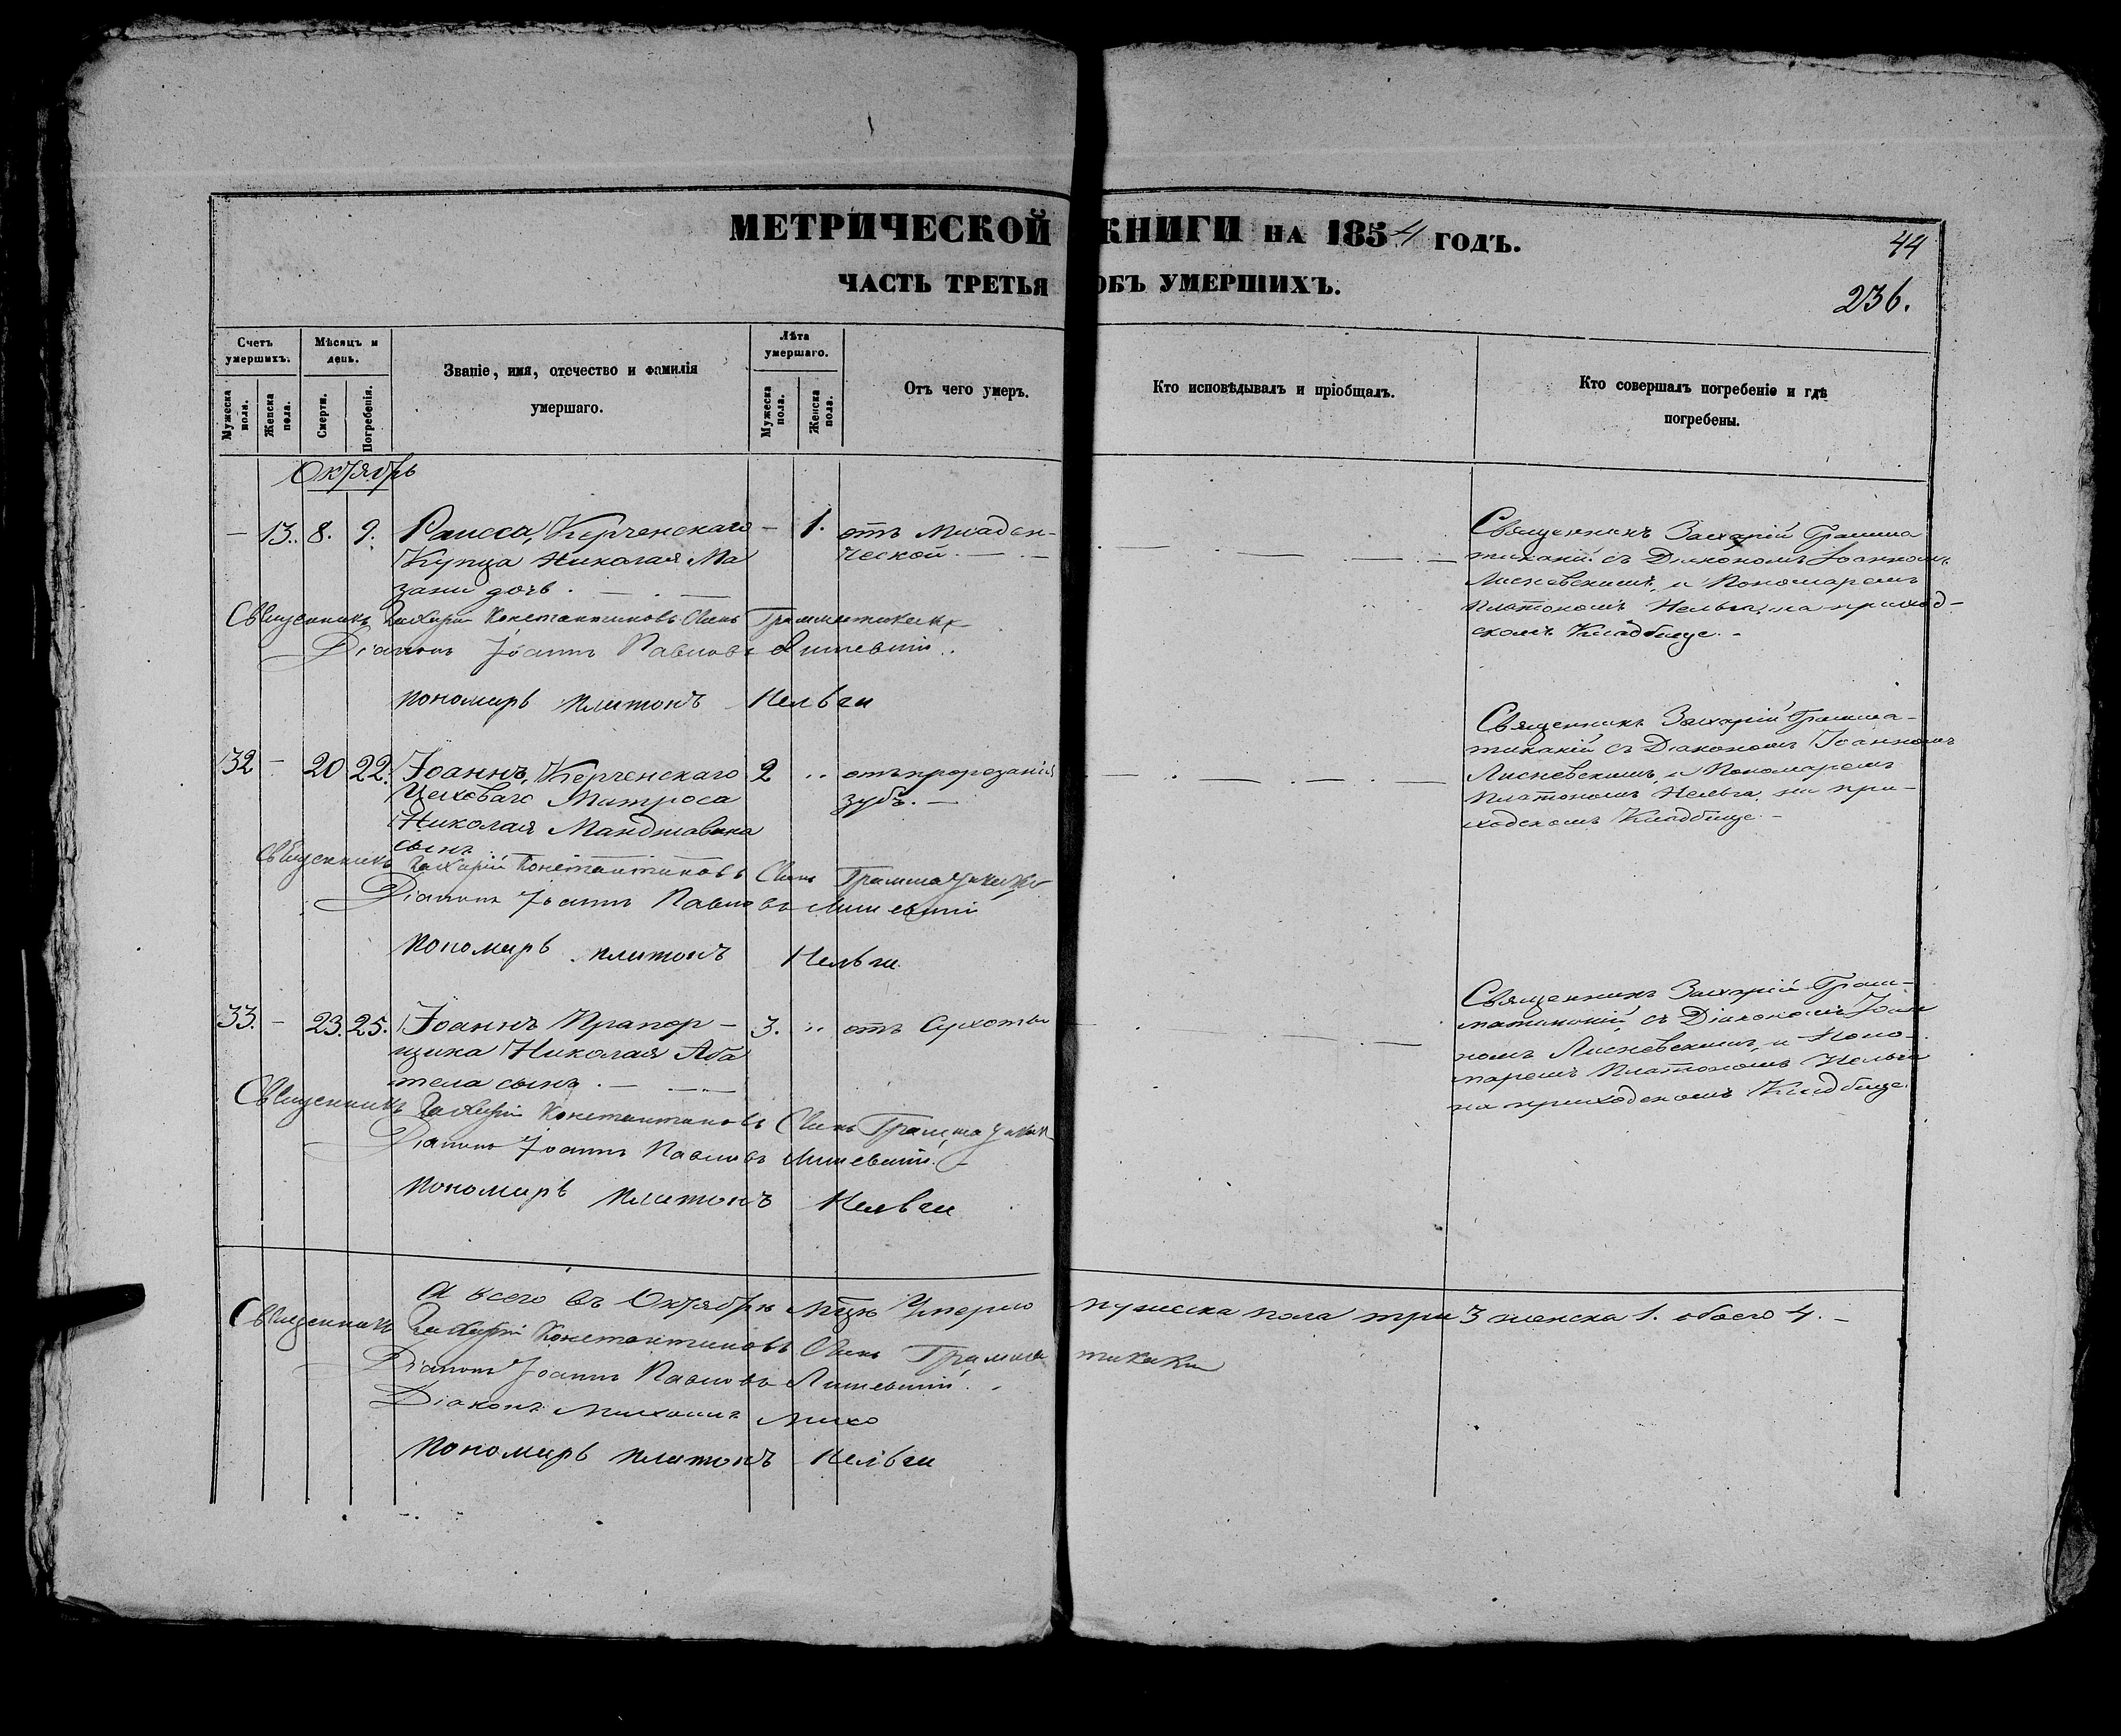 МЕТРИЧЕСКОЙ КНИГИ НА 1854 ГОДЪ.
44
ЧАСТЬ ТРЕТЬЯ ОБЪ УМЕРШИХЪ.
236.
Счетъ умершихъ.
Мужеска пола.
Женска пола.
Мѣсяцъ и день.
Смерти.
Погребенія.
Званіе, имя, отечество и фамилія
умершаго.
Лѣта умершаго.
Мужеска пола.
Женска пола.
Отъ чего умеръ.
Кто исповѣдывалъ и пріобщалъ.
Кто совершалъ погребеніе и гдѣ
погребены.
Октябрь
— 13. 8. 9. Раисса, Керченскаго — 1. отъ младен-
Купца Николая Ма ческой. —
зани дочь. —
Священникъ Захарій Грамма
тикакій съ Діакономъ Іоанномъ
Лисневскимъ, и Пономаремъ
Платономъ Нельга, на приход-
скомъ Кладбище. -
Священникъ Захарій Константиновъ Сынъ
Діаконъ Іоаннъ Павловъ
пономарь платонъ Нельги
32 — 20 22. Іоаннъ, Керченскаго 2 .. отъ прорезанія
Цеховаго Матроса зубъ. —
Николая
сынъ.
Священникъ Захарій Грамма-
тикакій съ Діакономъ Іоанномъ
Лисневскимъ, и Пономаремъ
Платономъ Нельга, на при-
ходскомъ Кладбище -
Священникъ Захарій Константиновъ Сынъ
Діаконъ Іоаннъ Павловъ
пономарь платонъ Нельги
33. — 23. 25. Іоаннъ Прапор- 3. .. отъ Сухоты
щика Николая Аба
тела сынъ. —
Священникъ Захарій Грам-
матикакій, съ Діакономъ Іоан
номъ Лисневскимъ, и Поно-
маремъ Платономъ Нельга
на приходскомъ Кладбище.
Священникъ Захарій Константиновъ Сынъ
Діаконъ Іоаннъ Павловъ
пономарь платонъ Нельги
А всего въ Октябрѣ Умерло мужеска пола три 3 женска 1. обоего 4. —
Священникъ Захарій Константиновъ Сынъ Грамматикаки
Діаконъ Іоаннъ Павловъ
Діаконъ Михаилъ
пономарь платонъ Нельги